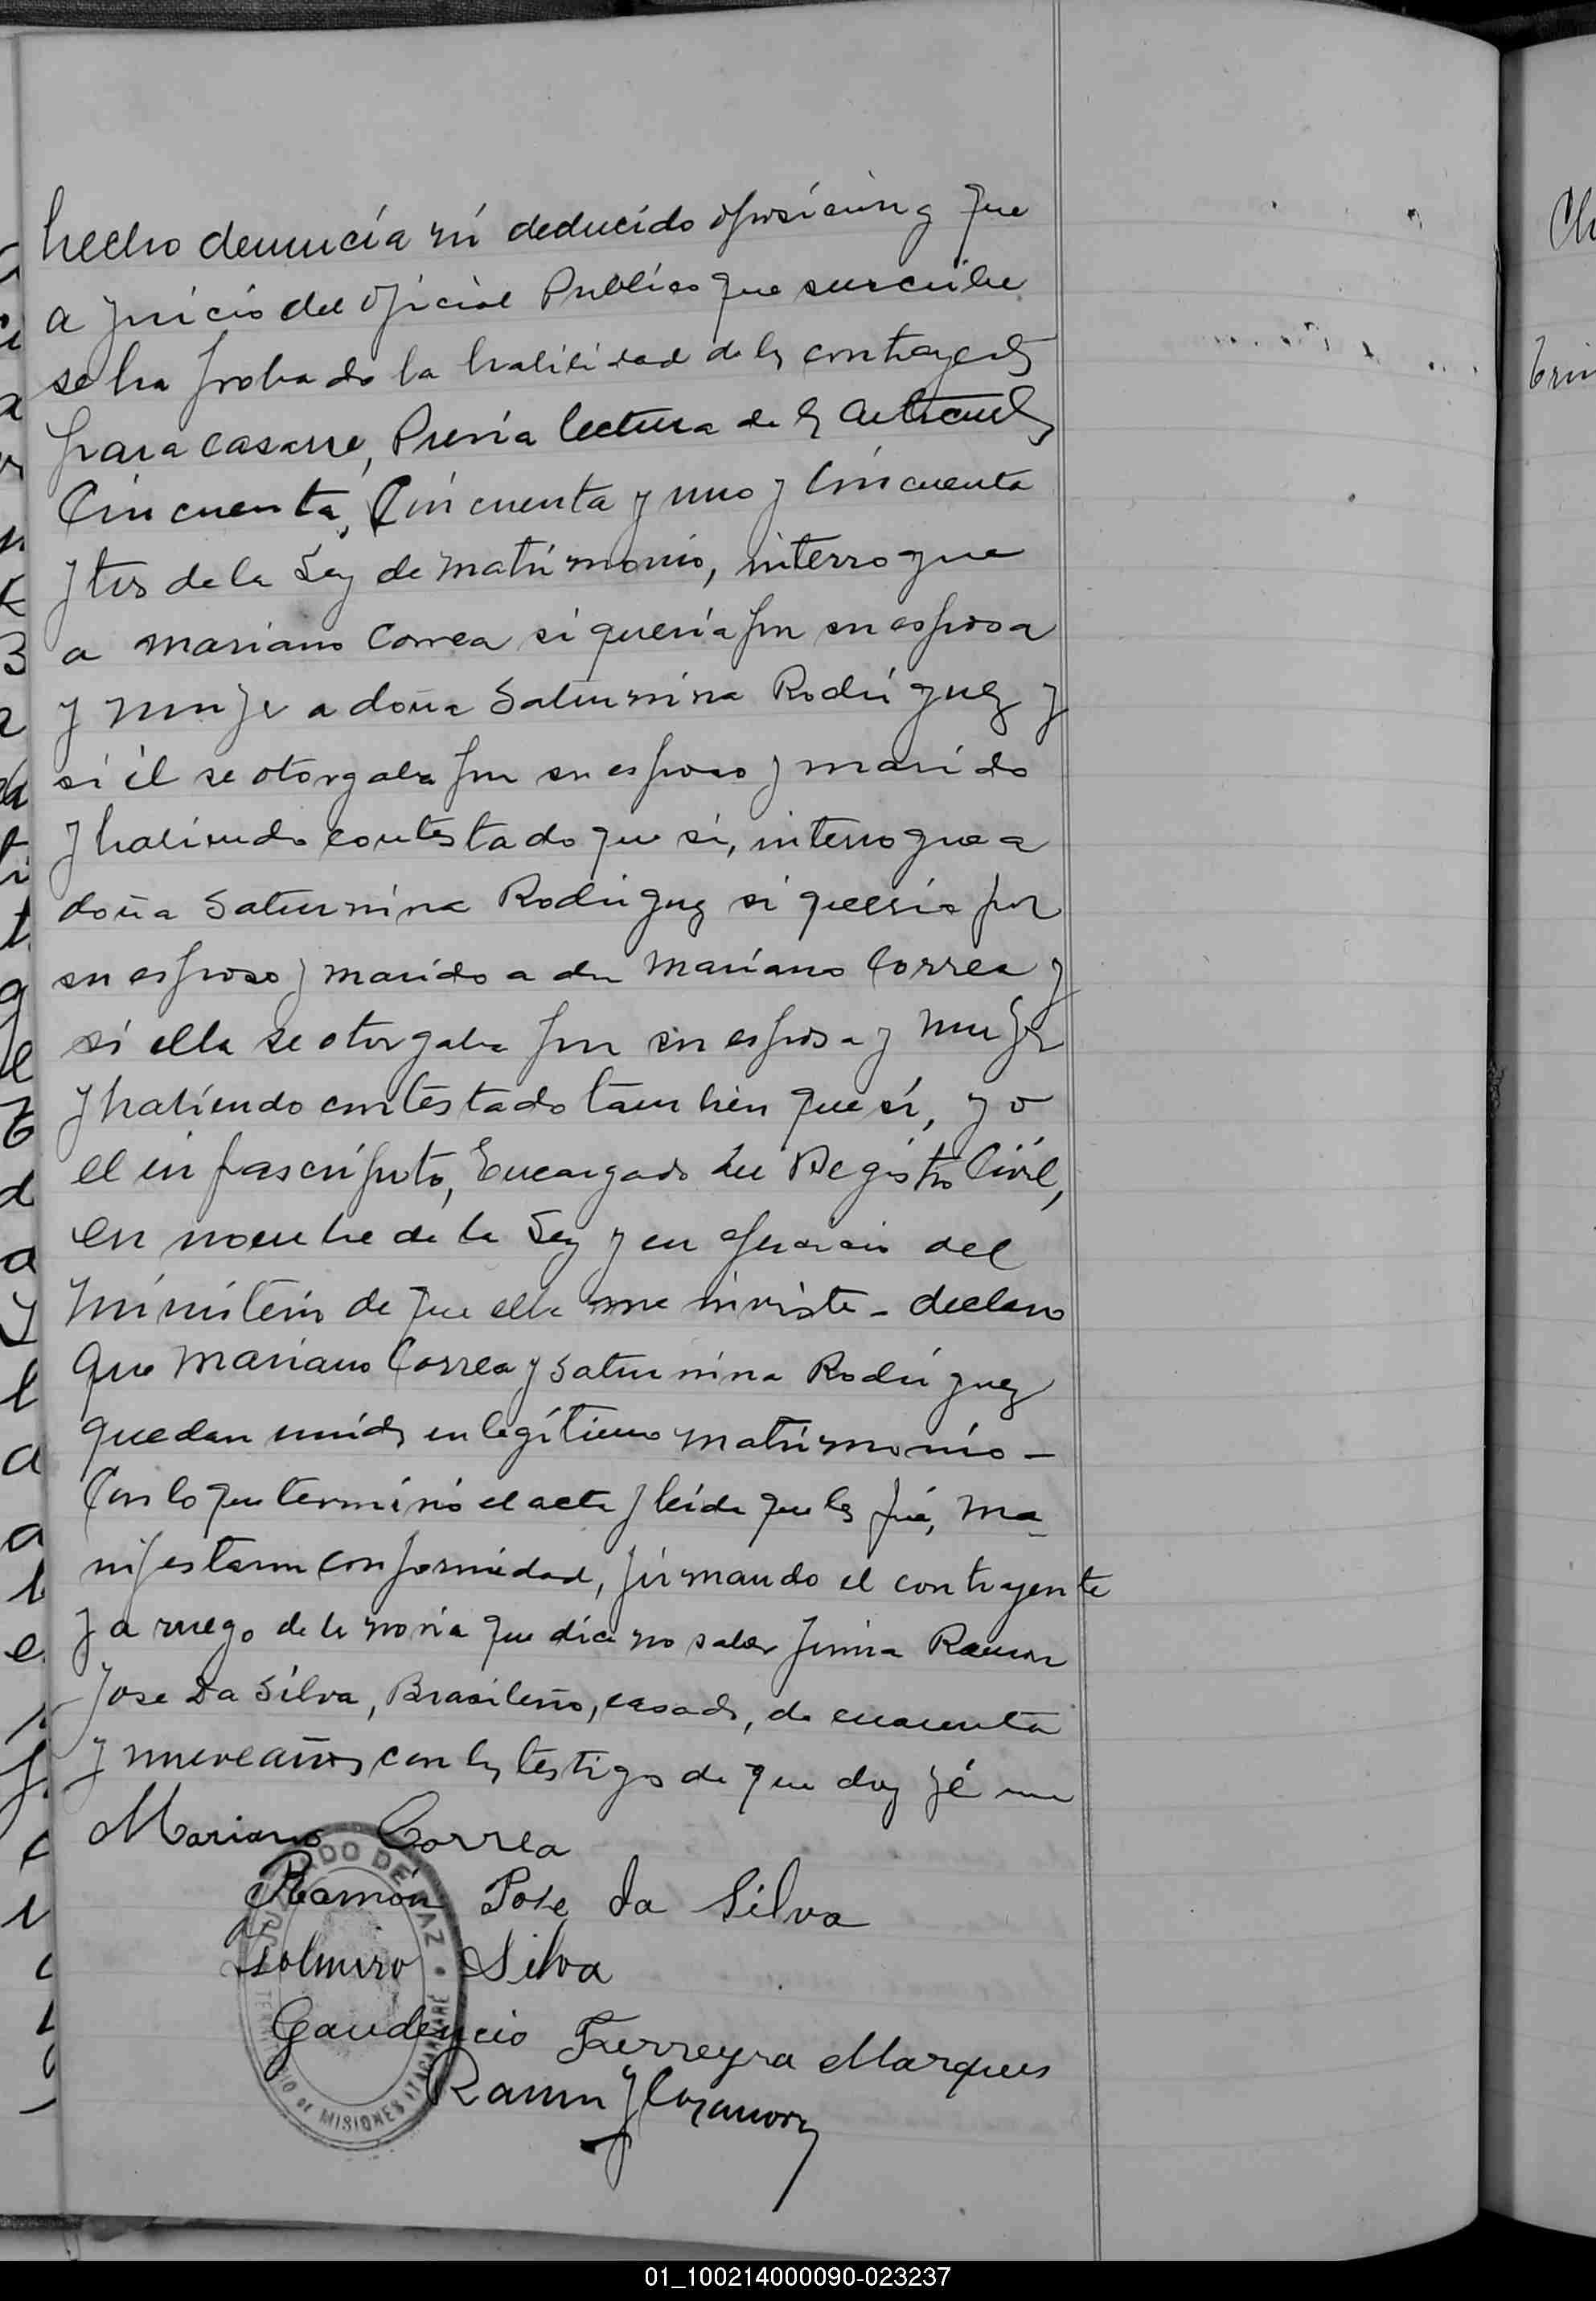 hecho denuncia ni deducido oposicion y que
a juicio del oficial Publico que suscribe
se ha probado la habilidad de los contrayentes
para casarse, Previa lectura de los articulos
Cincuenta, Cincuenta y uno y Cincuenta
y tres de la Ley de matrimonio, interrogue
a Mariano Correa si queria por su esposa
y mujer a doña Saturnina Rodriguez y
si él se otorgaba por su esposo y marido
y habiendo contestado que si, interrogue a
doña Saturnina Rodriguez si queria por
su esposo y marido a don Mariano Correa y
si ella se otorgaba por su esposa y mujer
y habiendo contestado tambien que si, yo
el infrascripto, Encargado del Registro Civil,
en nombre de la Ley y en ejercicio del
ministerio de que ella me inviste - declaro
que Mariano Correa y Saturnina Rodriguez
quedan unidos en legítimo matrimonio -
Con lo que terminó el acta y leida que les fué, ma-
nifestaron conformidad, firmando el contrayente
y a ruego de la novia que dice no saber firma Ramon
Jose Da Silva, Brasileño, casado, de cuarenta
y nueve años con los testigos de que doy fé
Mariano Correa
Ramón Jose da Silva
Silva
Gaudencio Ferreyra Marques
Ramon
JUZGADO DE PAZ
TERRITORIO DE MISIONES ITACARUARÉ
01_100214000090-023237